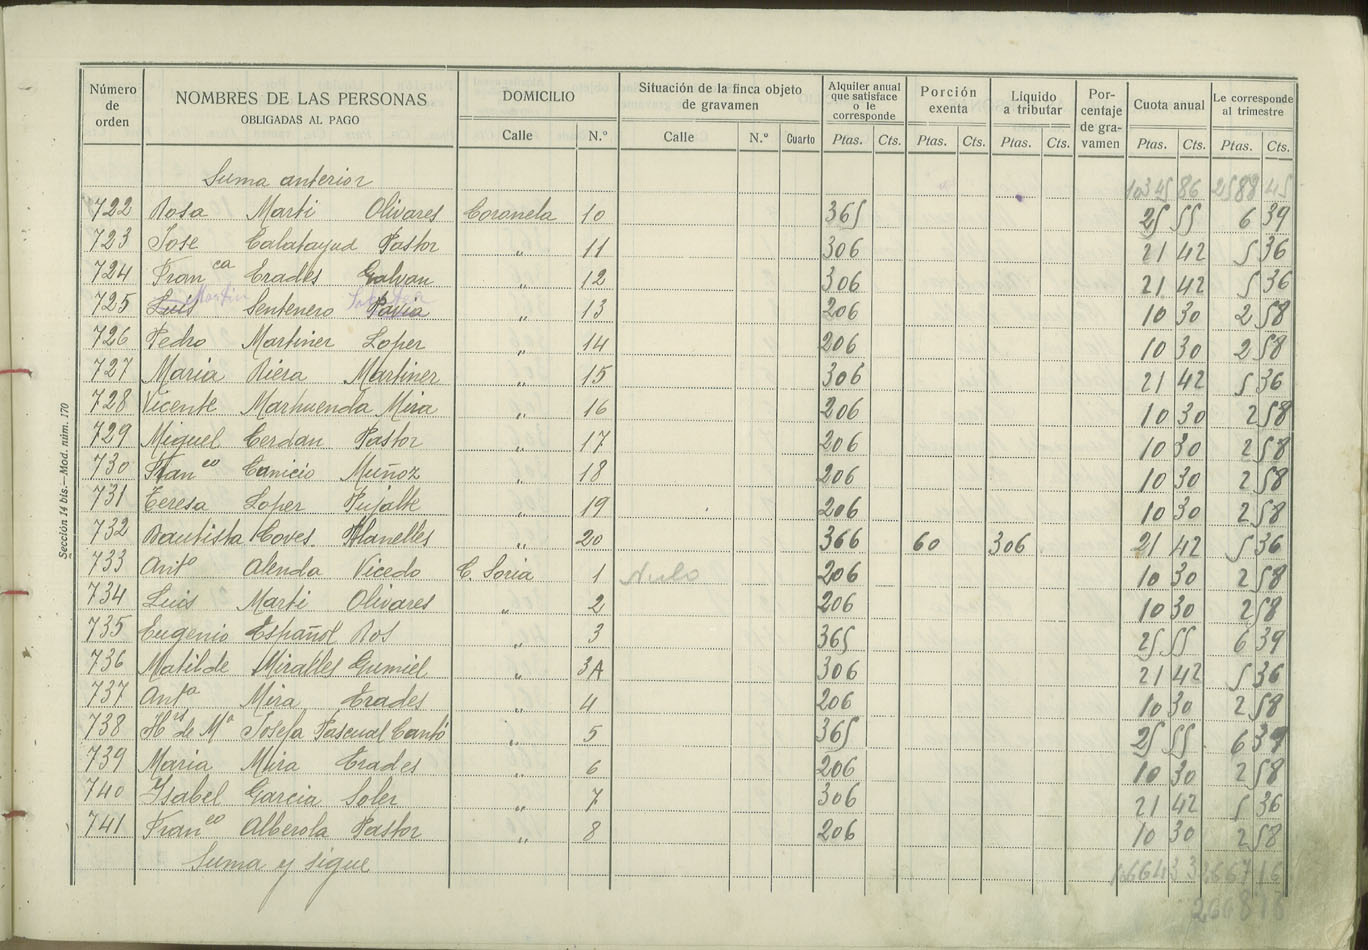 Número de orden NOMBRES DE LAS PERSONAS OBLIGADAS AL PAGO DOMICILIO Situación de la finca objeto de gravamen Alquiler anual que satisface o le corresponde Porción exenta Líquido a tributar Por-centaje de gra-vamen Cuota anual Le corresponde al trimestre
Calle N.º Calle N.º Cuarto Ptas. Cts. Ptas. Cts. Ptas. Cts. Ptas. Cts. Ptas. Cts.
Suma anterior 10345 86 2588 45
722 Rosa Marti Olivares Coronela 10 365 25 55 6 39
723 Jose Calatayud Pastor " 11 306 21 42 5 36
724 Fran ca Erades Galvan " 12 306 21 42 5 36
Martin
725 Luis Sentenero Pavia " 13 206 10 30 2 58
726 Pedro Martinez Lopez " 14 206 10 30 2 58
727 Maria Riera Martinez " 15 306 21 42 5 36
728 Vicente Marhuenda Mira " 16 206 10 30 2 58
729 Miguel Cerdan Pastor " 17 206 10 30 2 58
730 Fran co Canicio Muñoz " 18 206 10 30 2 58
731 Teresa Lopez Pujalte " 19 206 10 30 2 58
732 Bautista Coves Planelles " 20 366 60 306 21 42 5 36
733 Antº Alenda Vicedo C. Soria 1 Nulo 206 10 30 2 58
734 Luis Marti Olivares " 2 206 10 30 2 58
735 Eugenio Español Ros " 3 365 25 55 6 39
736 Matilde Miralles Gumiel " 3A 306 21 42 5 36
737 Antª Mira Erades " 4 206 10 30 2 58
738 Hrs de Mª Josefa Pascual Cantó " 5 365 25 55 6 39
739 Maria Mira Erades " 6 206 10 30 2 58
740 Isabel Garcia Soler " 7 306 21 42 5 36
741 Fran co Alberola Pastor " 8 206 10 30 2 58
Suma y sigue
Sección 14 bis.—Mod. núm. 170